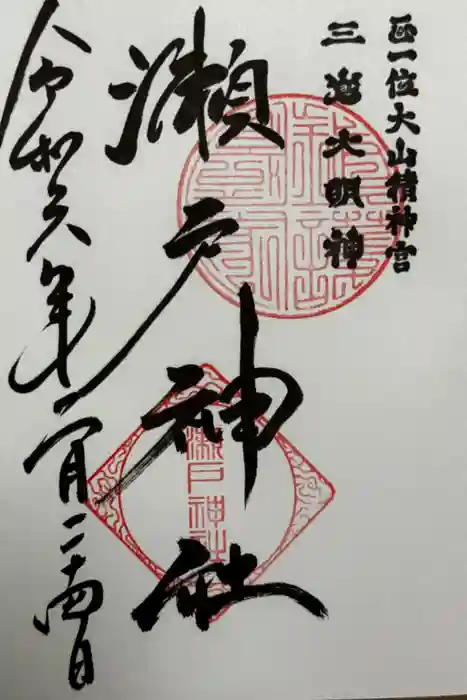 正一位大山積神宮
三島大明神
瀬戸神社
令和六年二月二十四日
瀬戸神社